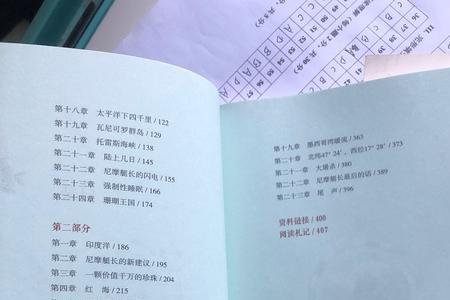 第十八章 太平洋下四千里 / 122
第十九章 瓦尼可罗群岛 / 129
第二十章 托雷斯海峡 / 138
第二十一章 陆上几日 / 145
第二十二章 尼摩艇长的闪电 / 155
第二十三章 强制性睡眠 / 166
第二十四章 珊瑚王国 / 174
第二部分
第一章 印度洋 / 186
第二章 尼摩艇长的新建议 / 195
第三章 一颗价值千万的珍珠 / 204
第四章 红 海 / 215
第十九章 墨西哥湾暖流 / 363
第二十章 北纬47° 24′，西经17° 28′ / 373
第二十一章 大屠杀 / 380
第二十二章 尼摩艇长最后的话 / 389
第二十三章 尾 声 / 396
资料链接 / 400
阅读札记 / 407